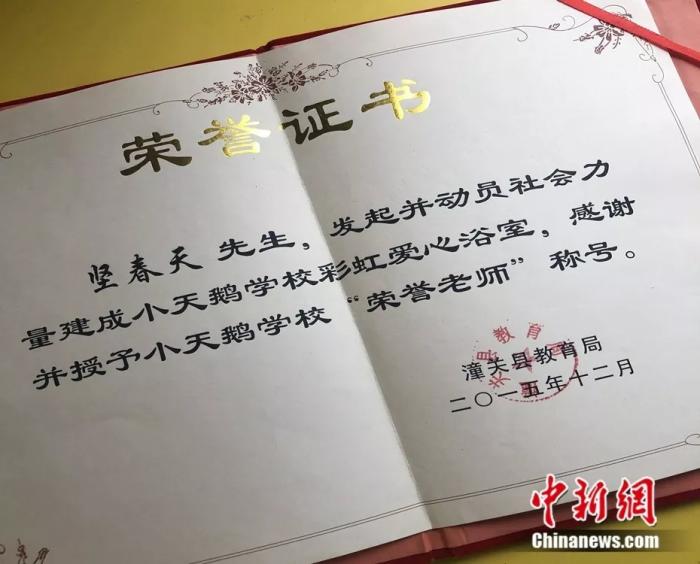 荣誉证书
坚春天 先生，发起并动员社会力
量建成小天鹅学校彩虹爱心浴室，感谢
并授予小天鹅学校“荣誉老师”称号。
潼关县教育局
二〇一五年十二月
中新網
Chinanews.com